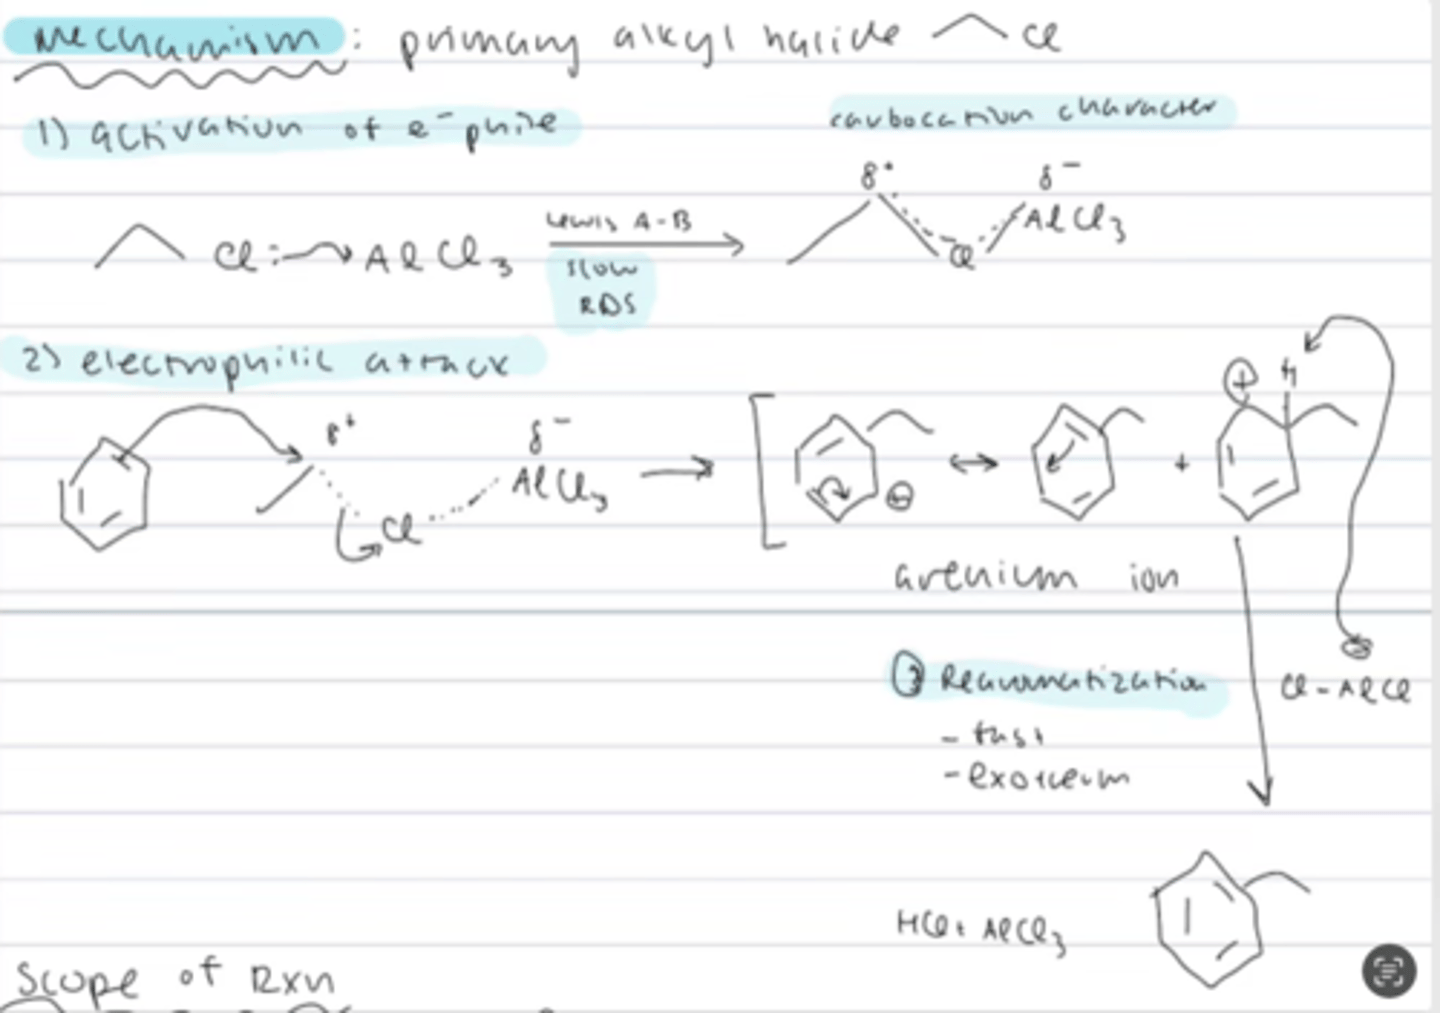 mechanism: primary alkyl halide Cl
1) activation of e⁻phile
carbocation character
δ⁺ δ⁻
Cl: AlCl₃ Lewis A-B Cl AlCl₃
slow
RDS
2) electrophilic attack
δ⁺ δ⁻ ⊕ H
Cl AlCl₃ ⊕ +
arenium ion
③ Rearomatization Cl-AlCl
- fast
- exotherm
HCl + AlCl₃
Scope of Rxn